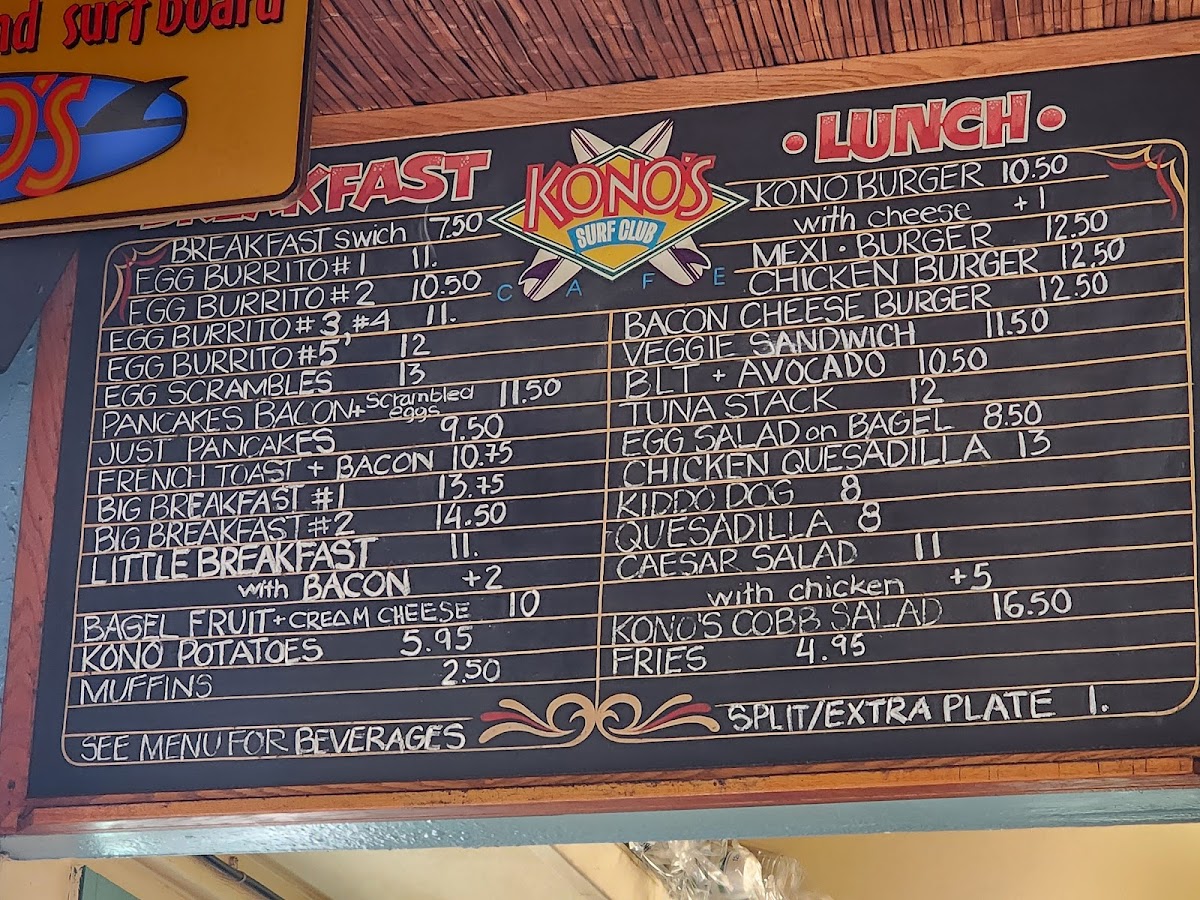 nd surf board
O'S
BREAKFAST
BREAKFAST Swich 7.50
EGG BURRITO #1 11.
EGG BURRITO #2 10.50
EGG BURRITO #3, #4 11.
EGG BURRITO #5 12
EGG SCRAMBLES 13
PANCAKES BACON + Scrambled eggs 11.50
JUST PANCAKES 9.50
FRENCH TOAST + BACON 10.75
BIG BREAKFAST #1 13.75
BIG BREAKFAST #2 14.50
LITTLE BREAKFAST 11.
with BACON +2
BAGEL FRUIT + CREAM CHEESE 10
KONO POTATOES 5.95
MUFFINS 2.50
SEE MENU FOR BEVERAGES
KONO'S
SURF CLUB
CAFE
• LUNCH •
KONO BURGER 10.50
with cheese +1
MEXI • BURGER 12.50
CHICKEN BURGER 12.50
BACON CHEESE BURGER 12.50
VEGGIE SANDWICH 11.50
BLT + AVOCADO 10.50
TUNA STACK 12
EGG SALAD on BAGEL 8.50
CHICKEN QUESADILLA 13
KIDDO DOG 8
QUESADILLA 8
CAESAR SALAD 11
with chicken +5
KONO'S COBB SALAD 16.50
FRIES 4.95
SPLIT/EXTRA PLATE 1.